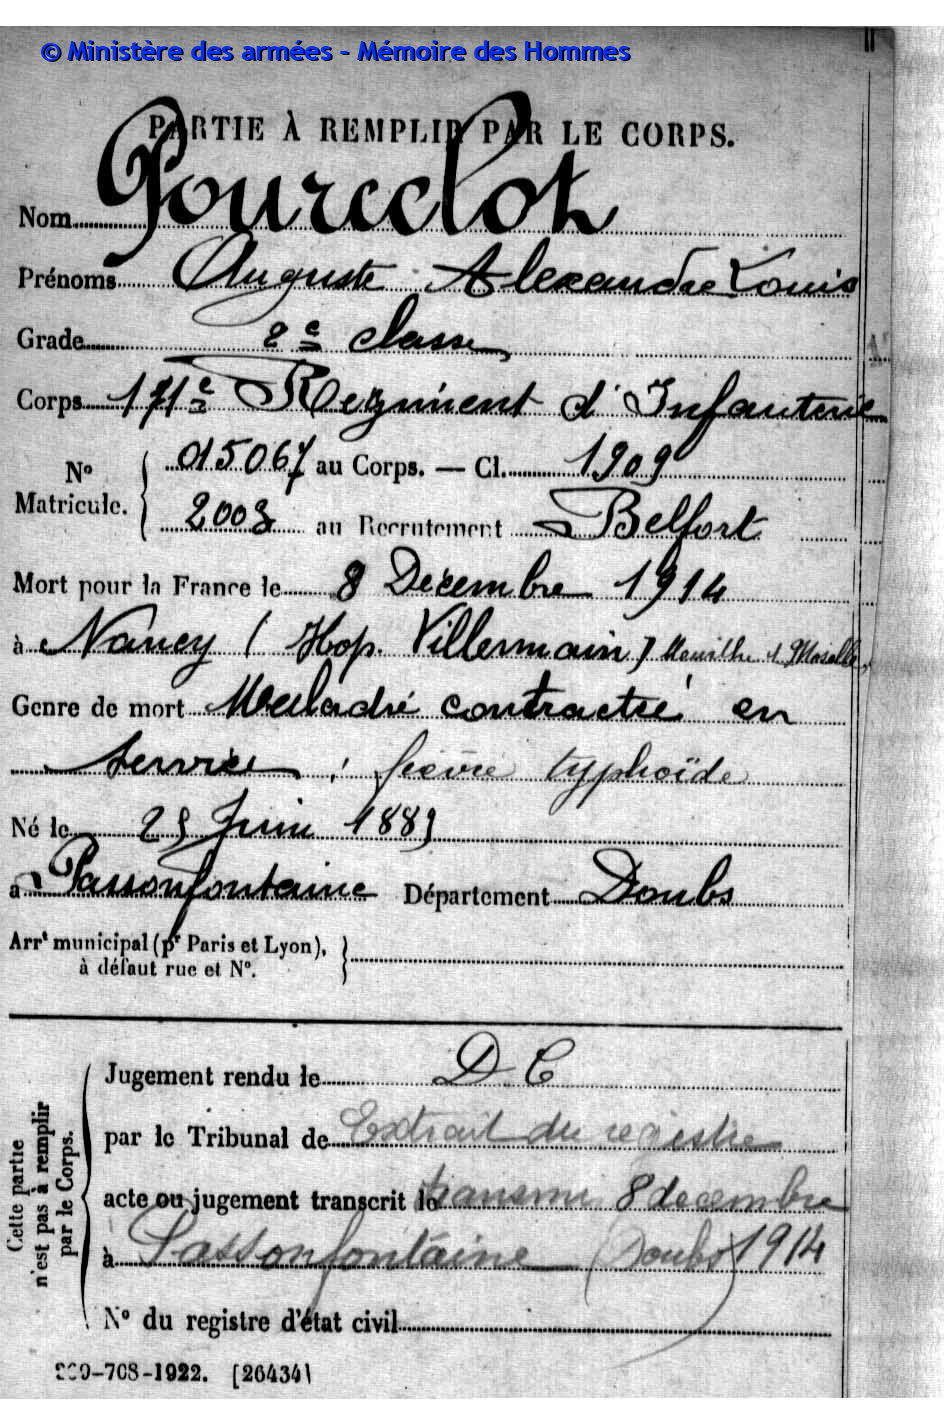 © Ministère des armées - Mémoire des Hommes
PARTIE À REMPLIR PAR LE CORPS.
Nom Pourcelot
Prénoms Auguste Alexandre Louis
Grade 2e classe
Corps 171e Régiment d'Infanterie
No Matricule. 015067 au Corps. — Cl. 1909
2003 au Recrutement Belfort
Mort pour la France le 8 Décembre 1914
à Nancy (Hop. Villermain) Meurthe et Moselle
Genre de mort Maladie contractée en
service ; fièvre typhoïde
Né le 25 Juin 1889
à Passonfontaine Département Doubs
Arrt municipal (pr Paris et Lyon),
à défaut rue et No.
Cette partie
n'est pas à remplir
par le Corps.
Jugement rendu le D C
par le Tribunal de Extrait du registre
acte ou jugement transcrit le transmis 8 decembre
à Passonfontaine (Doubs) 1914
No du registre d'état civil
708-1922. [26434]